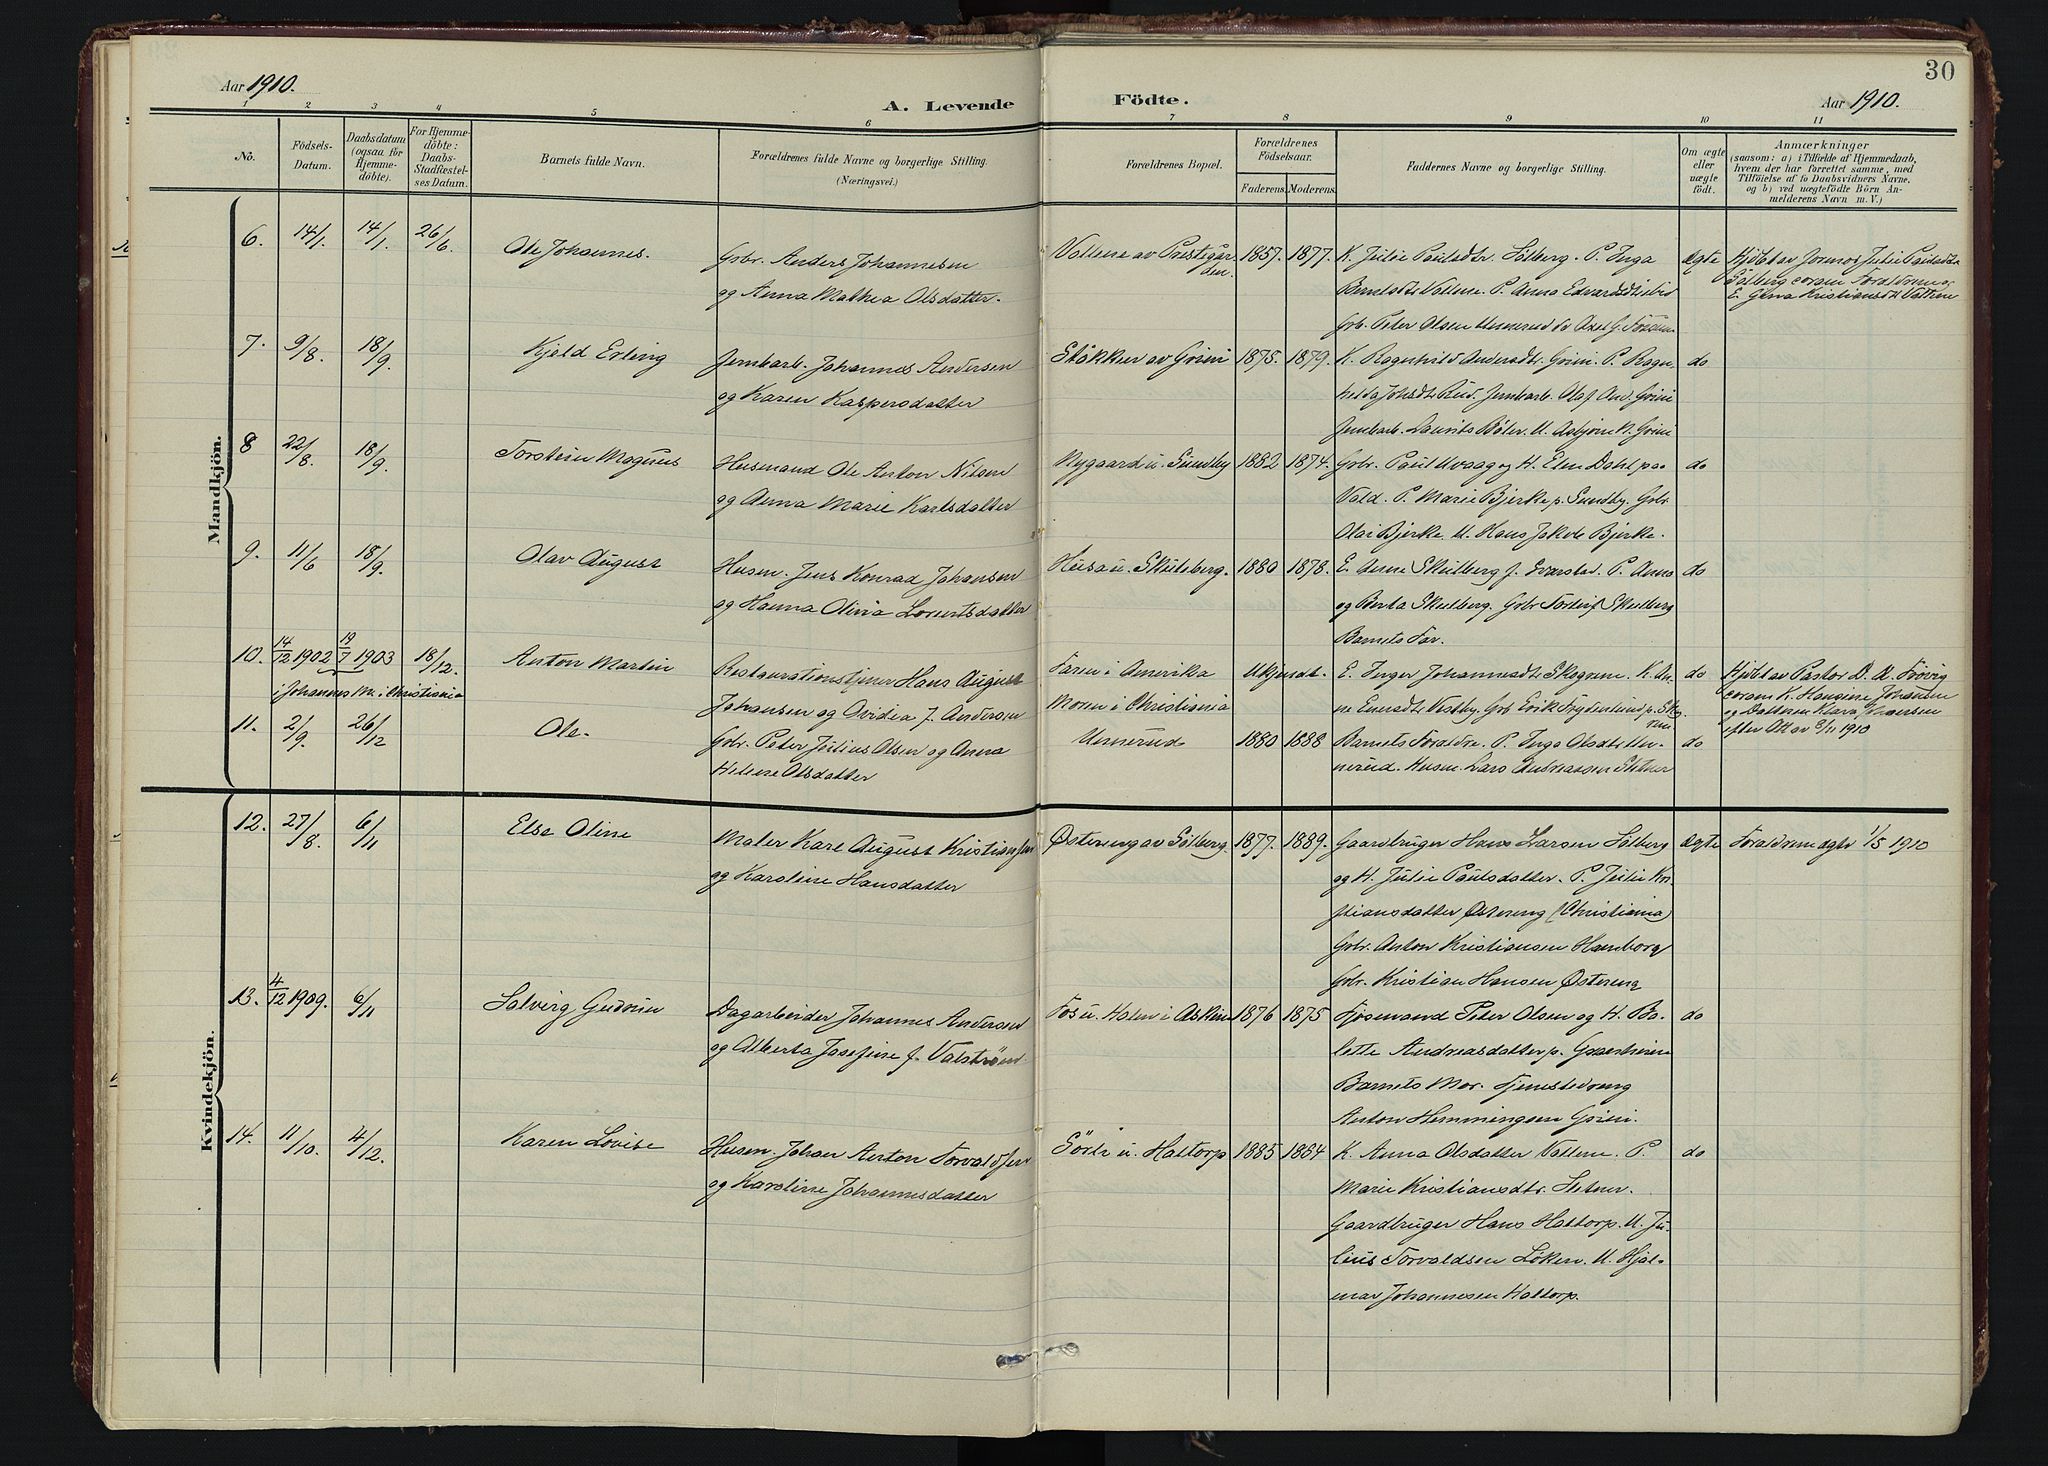 30
Aar 1910.
A. Levende Födte.
Aar 1910.
1 2 3 4 5 6 7 8 9 10 11
No.
Födsels-
Datum.
Daabsdatum
(ogsaa for
Hjemme-
döbte).
For Hjemme-
döbte:
Daabs-
Stadfæstel-
ses Datum.
Barnets fulde Navn.
Forældrenes fulde Navne og borgerlige Stilling.
(Næringsvei.)
Forældrenes Bopæl.
Forældrenes
Födselsaar.
Faderens. Moderens.
Faddernes Navne og borgerlige Stilling.
Om ægte
eller
uægte
födt.
Anmærkninger
(saasom: a) i Tilfælde af Hjemmedaab,
hvem der har forrettet samme, med
Tilföielse af to Daabsvidners Navne,
og b) ved uægtefödte Börn An-
melderens Navn m. V.)
Mandkjön.
6. 14/1. 14/1. 26/6. Ole Johannes.
Gbr. Anders Johannesen
og Anna Mathea Olsdatter.
Vollene av Prestegar
den. 1857. 1877.
K. Julie Paulsdtr. Sölberg. P. Inga
Vollene. P. Anna
Gbr. Peter Olsen Unnerud
ægte
Hjdbt av Jormor Julie Paulsdtr
Sölberg coram Forældrene og
E. Kristiansdtr Vollene
7. 9/8. 18/9. Kjeld Erling
Jernbarb. Johannes Andersen
og Karen Kaspersdatter
Stökken av Grini 1875. 1879.
K. Ragnhild Andersdtr. Grini. P. Ragn
Jernbarb. Olaf And. Grini
Jernbarb. Laurits Böler. U. Asbjörn N. Grini
do
8 22/8. 18/9. Torstein Magnus
Husmand Ole Anton Nilsen
og Anna Marie Karlsdatter
Nygaard u. Sundby 1882 1874.
Gbr. Paul Uvaag og H. Elen Dahl paa
Vald. P. Marie Bjerke p. Sundby. Gbr.
Olai Bjerke. U. Hans Jakob Bjerke.
do
9. 11/6 18/9. Olav August
Husm. Jens Konrad Johansen
og Hanna Olivia Lorentsdatter
Husa u. Skulsberg. 1880 1878.
E. Anne Skulberg f. Ivarstad. P. Anna
og Berta Skulberg. Gbr Torleif Skulberg
Barnets Far.
do
10. 14/12 1902 19/7 1903 18/12. Anton Martin
i Johannes M. i Christiania
Restaurationstjener Hans August
Johansen og Ovidia J. Andersen
Faren i Amerika
Moren i Christiania
Ukjendt.
E. Inger Johannesdtr Skogrene. K. An-
ne Vestby. Gbr Erik Frydenlund p. Skog
rene
do
Hjdbt av Pastor D. A. Frövig
coram K. Hansine Johansen
og Datteren Klara Johansen
efter Att av 8/11 1910
11. 2/9. 26/12 Ole.
Gbr. Peter Julius Olsen og Anna
Helene Olsdatter
Unnerud 1880 1888
Barnets Forældre. P. Inga Olsdtr Un-
nerud. Husm. Lars Andreassen Stitner
do
Kvindekjön.
12. 27/8. 6/11 Else Oline
Maler Karl August Kristiansen
og Karoline Hansdatter
Östereng av Sölberg. 1877. 1889.
Gaardbruger Hans Larsen Sölberg
og H. Julie Paulsdatter. P. Julie Kri-
stiansdatter Östereng (Christiania)
Gbr. Anton Kristiansen Hamborg
Gbr. Kristian Hansen Östereng
ægte Forældrene ægtv 1/5 1910
13. 4/12 1909. 6/11 Solveig Gudrun
Dagarbeider Johannes Andersen
og Alberta Josefine f. Valström.
Fos u. Holen i Askim 1876 1875
Fjösmand Peter Olsen og H. Bo-
lette Andreasdatter p.
Barnets Mor. Tjenestedreng
Anton Hemmingsen Grini.
do
14. 11/10. 4/12. Karen Lovise
Husm. Johan Anton Torvaldsen
og Karoline Johannesdatter
Sörli u. Haltorp 1885 1884
K. Anna Olsdatter Vollene. P.
Marie Kristiansdtr. Stitner.
Gaardbruger Hans Haltorp. U. Ju-
lius Torvaldsen Löken. U. Hjal-
mar Johannesen Haltorp.
do